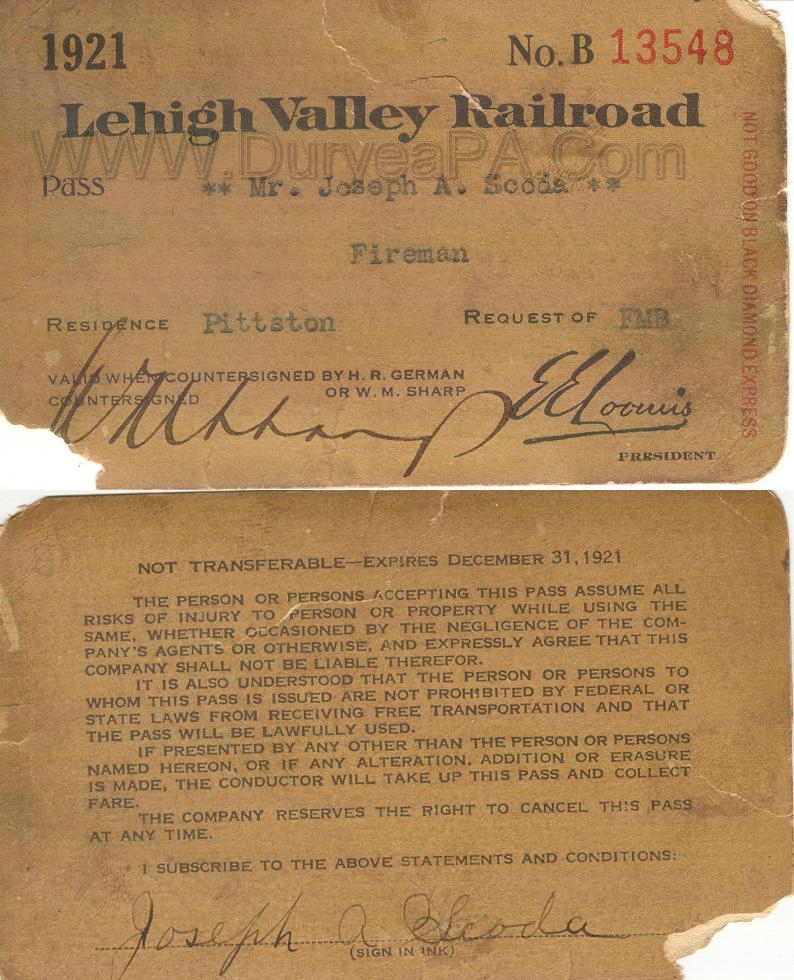 1921 No. B 13548
Lehigh Valley Railroad
WWW.DuryeaPA.Com
Pass ** Mr. Joseph A. Scoda **
Fireman
RESIDENCE Pittston REQUEST OF FMB
VALID WHEN COUNTERSIGNED BY H. R. GERMAN
OR W. M. SHARP
COUNTERSIGNED
E E Loomis
PRESIDENT
NOT GOOD ON BLACK DIAMOND EXPRESS
NOT TRANSFERABLE—EXPIRES DECEMBER 31, 1921
THE PERSON OR PERSONS ACCEPTING THIS PASS ASSUME ALL
RISKS OF INJURY TO PERSON OR PROPERTY WHILE USING THE
SAME, WHETHER OCCASIONED BY THE NEGLIGENCE OF THE COM-
PANY'S AGENTS OR OTHERWISE, AND EXPRESSLY AGREE THAT THIS
COMPANY SHALL NOT BE LIABLE THEREFOR.
IT IS ALSO UNDERSTOOD THAT THE PERSON OR PERSONS TO
WHOM THIS PASS IS ISSUED ARE NOT PROHIBITED BY FEDERAL OR
STATE LAWS FROM RECEIVING FREE TRANSPORTATION AND THAT
THE PASS WILL BE LAWFULLY USED.
IF PRESENTED BY ANY OTHER THAN THE PERSON OR PERSONS
NAMED HEREON, OR IF ANY ALTERATION, ADDITION OR ERASURE
IS MADE, THE CONDUCTOR WILL TAKE UP THIS PASS AND COLLECT
FARE.
THE COMPANY RESERVES THE RIGHT TO CANCEL THIS PASS
AT ANY TIME.
I SUBSCRIBE TO THE ABOVE STATEMENTS AND CONDITIONS:
Joseph A Scoda
(SIGN IN INK)